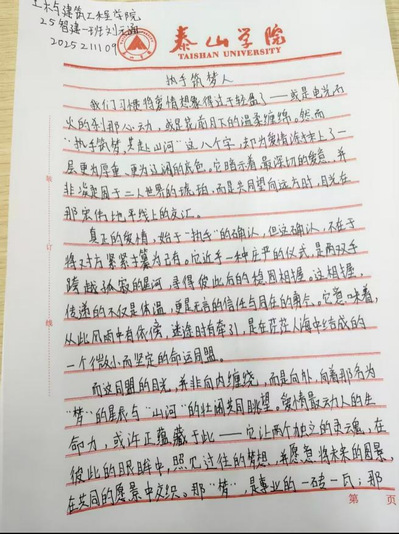 土木与建筑工程学院
25智建一班刘元
2025211109
泰山学院
TAISHAN UNIVERSITY
执手筑梦人
我们习惯将爱情想象得过于轻盈了——或是电光石
火的刹那心动，或是花前月下的温柔缠绵。然而
“执手筑梦，共赴山河”这八个字，却为爱情涂抹上了一
层更为厚重、更为辽阔的底色。它暗示着最深切的爱意，并
非凝固于二人世界的琥珀，而是共同望向远方时，目光在
那宏伟地平线上的交汇。
真正的爱情，始于“执手”的确认，但这确认，不在于
将对方紧紧 为己有。它近乎一种庄严的仪式，是两双手
跨越孤寂的星河，寻得彼此后的稳固相握。这相握，
传递的不仅是体温，更是无言的信任与同在的 。它意味着，
从此风雨中有依傍，迷途时有牵引，是在茫茫人海中结成的
一个微小而坚定的命运同盟。
而这同盟的目光，并非向内缠绕，而是向外，向着那名为
“梦”的星辰与“山河”的壮阔共同眺望。爱情最动人的生
命力，或许正蕴藏于此——它让两个独立的灵魂，在
彼此的眼眸中，照见过往的梦想，并愿意将未来的图景，
在共同的愿景中交织。那“梦”，是事业的一砖一瓦；那
装
订
线
第 页